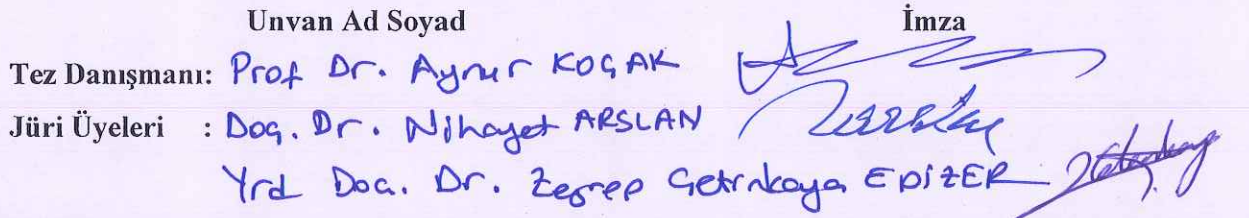 Unvan Ad Soyad İmza
Tez Danışmanı: Prof Dr. Aynur KOÇAK
Jüri Üyeleri : Doç. Dr. Nihayet ARSLAN
Yrd Doç. Dr. Zeynep Çetinkaya EDİZER